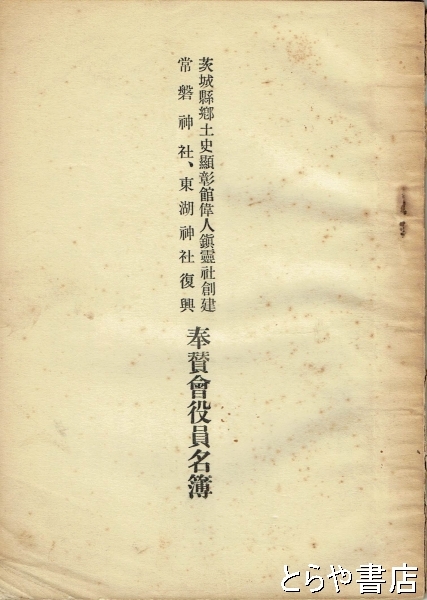 茨城縣鄕土史顯彰館偉人鎭靈社創建
常磐神社、東湖神社復興
奉賛會役員名簿
とらや書店